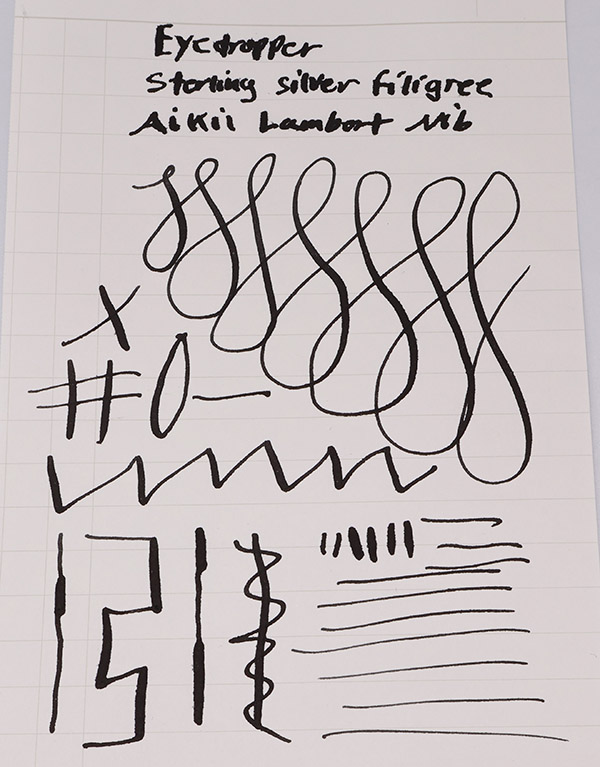 Eyedropper
Sterling silver filigree
Aikin Lambert Nib
X
#0—